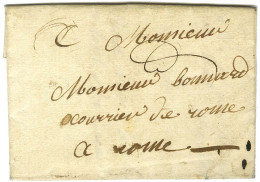 Monsieur
Monsieur bonnard
courrier de rome
a rome